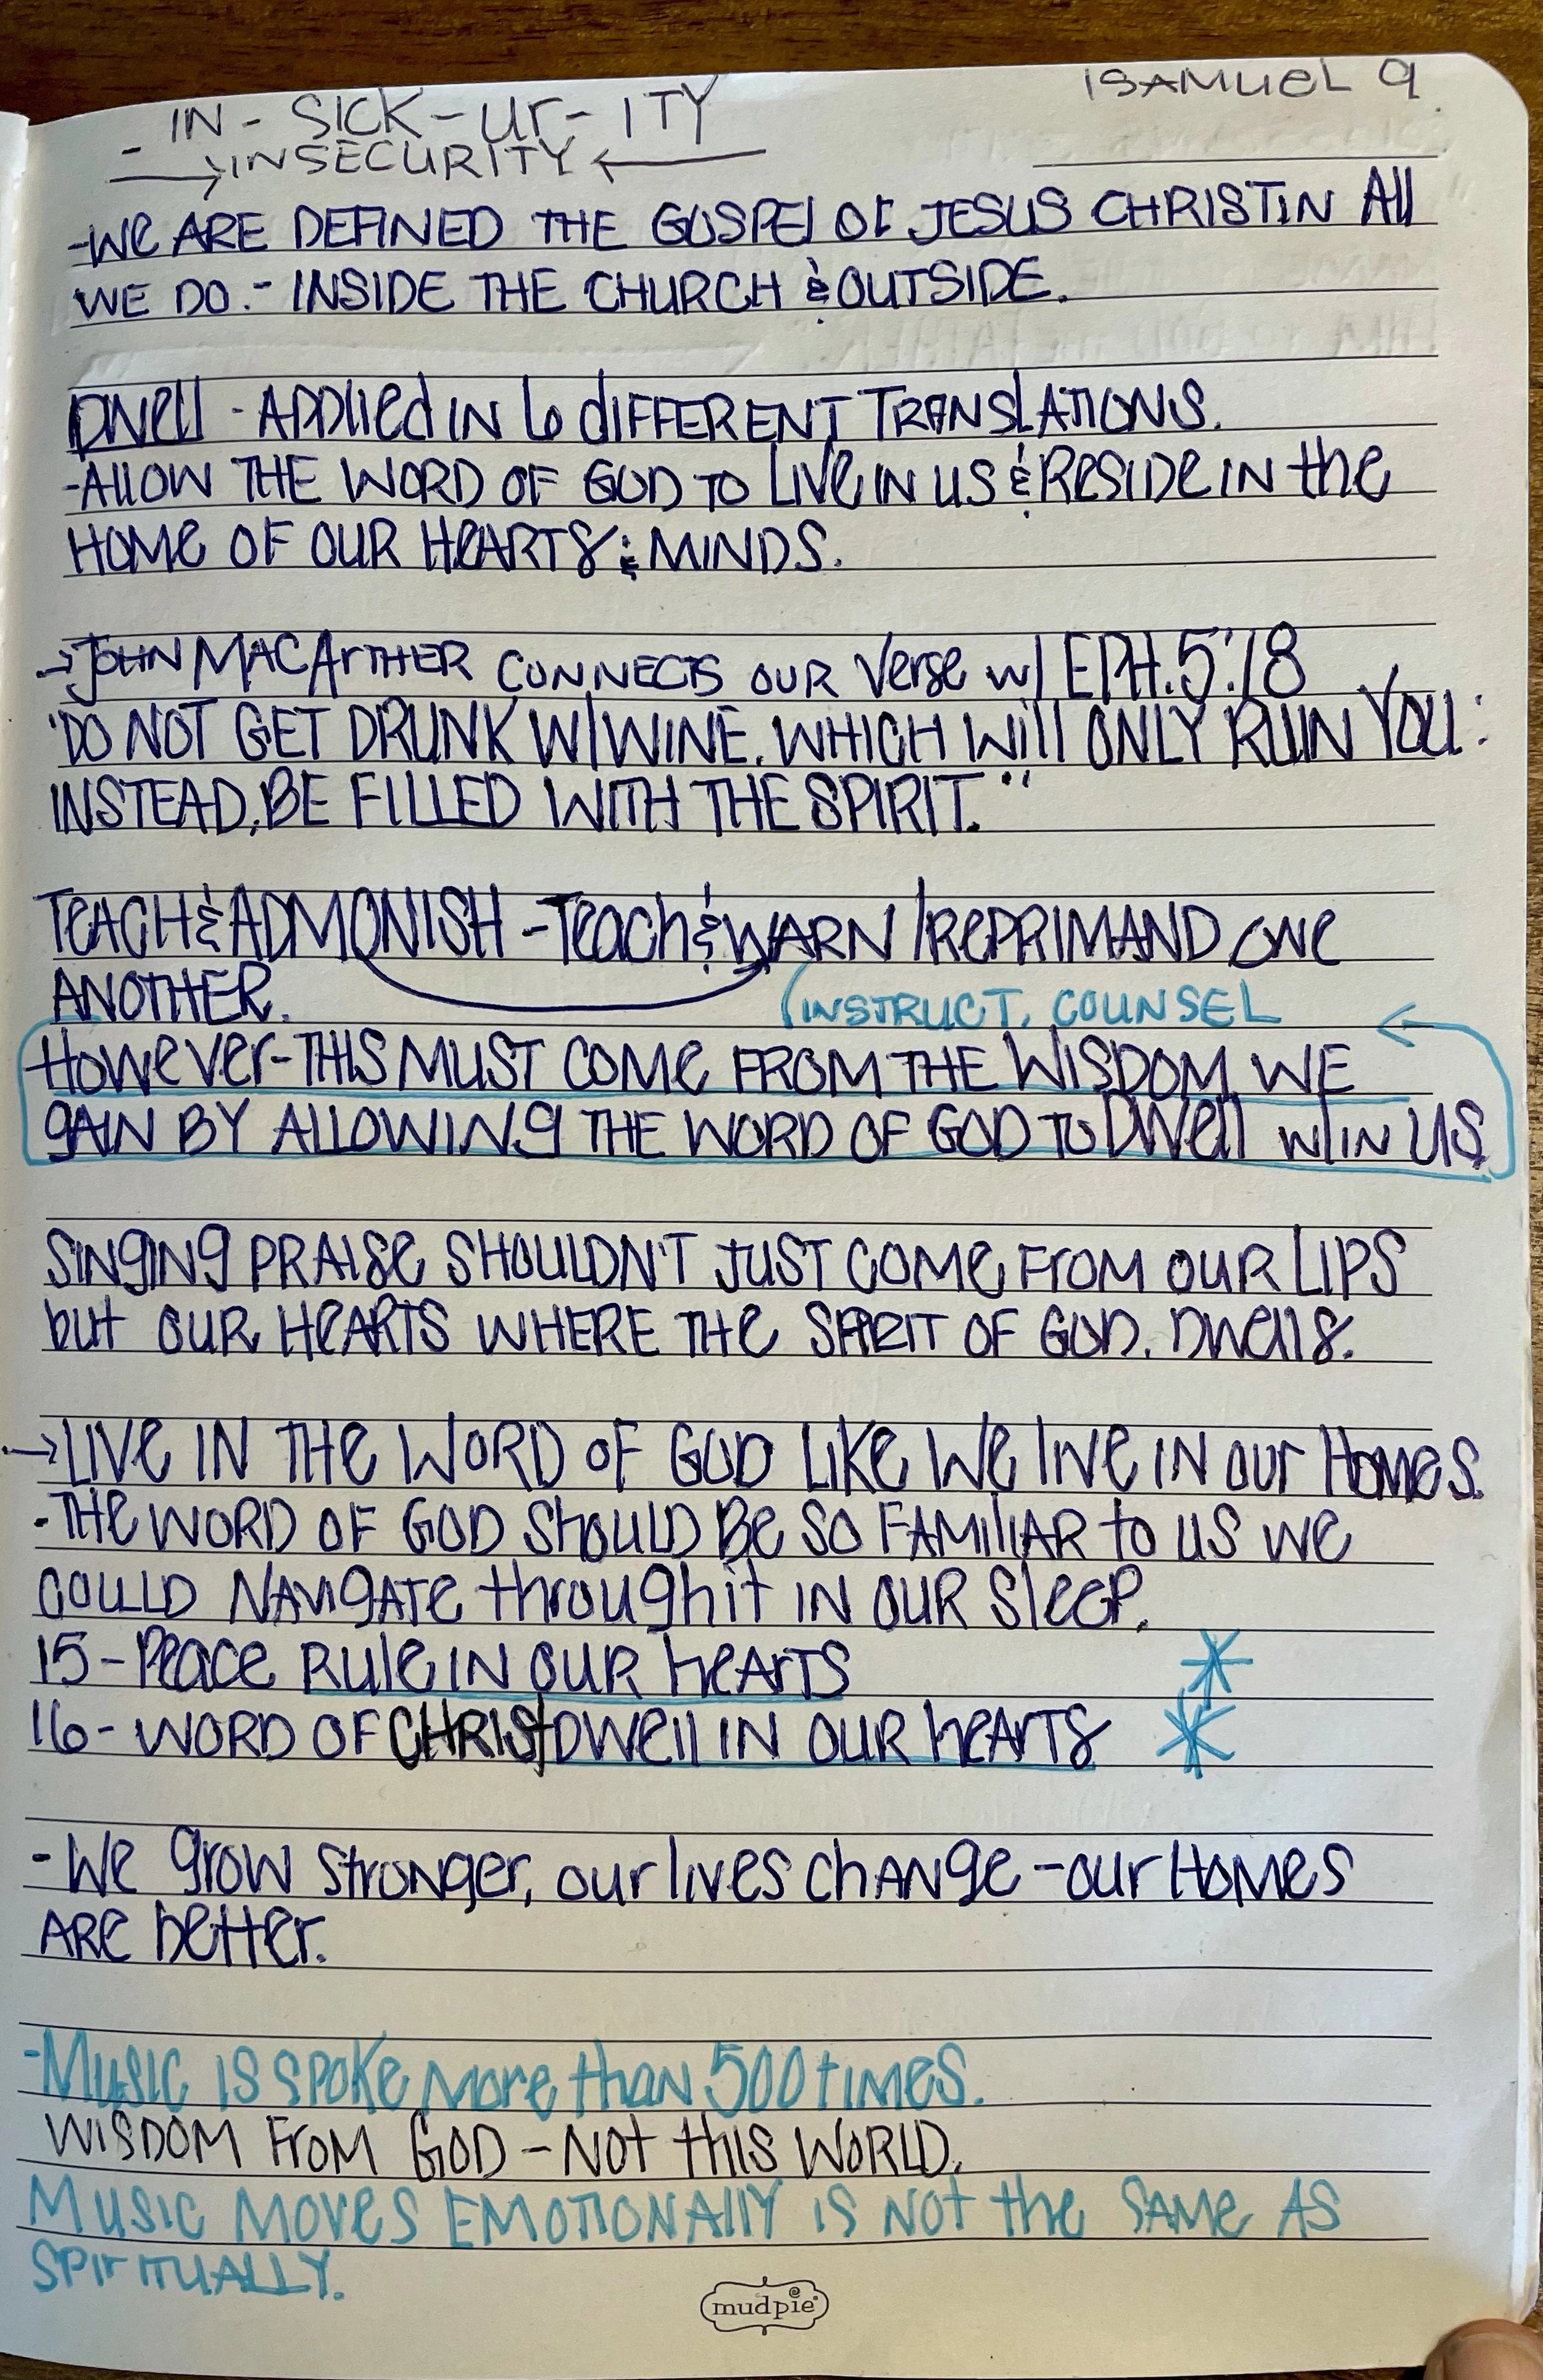 1SAMUEL 9
- IN - SICK - ur - ITY
→ INSECURITY ←
-WE ARE DEFINED THE GOSPEL OF JESUS CHRIST IN All
WE DO. - INSIDE THE CHURCH & OUTSIDE.
DWell - APPlied IN 6 dIFFERENT TRANSLATIONS.
-AllOW THE WORD OF GOD TO LIVe IN US & ResIDe IN the
HOMe OF OUR HeARTS & MINDS.
→JOHN MACArTHER CONNECTS OUR Verse w/ EPH. 5:18
"DO NOT GET DRUNK W/WINE, WHICH WIll ONLY RUIN YOU:
INSTEAD, BE FILLED WITH THE SPIRIT."
TEACH & ADMONISH - Teach & WARN / RePRIMAND ONe
ANOTHER.
(INSTRUCT, COUNSEL
HoweVer-THIS MUST COMe FROM THE WISDOM WE
gAIN BY ALLOWINg THE WORD OF GOD TO DWell W/IN US
SINgINg PRAISe SHOULDN'T JUST COMe FrOM OUR LIPS
but OUR HeARTS WHERE THe SPIRIT OF GOD. DWells.
→LIVe IN THe WORD OF GOD LIKe We lIVe IN our HOMeS.
-THe WORD OF GOD ShOULD Be SO FAMIlIAR to US we
COULD NAVIgATe through it IN OUR SleeP.
15-Peace RUle IN OUR heArTS
16- WORD OF CHRISt DWell IN OUR heArTS
-We grow stronger, our lives chANge - our HOMeS
ARe better.
-MUSIC IS SPOKe MOre thAN 500 tIMeS.
WISDOM FrOM GOD - NOt thIS WORLD.
MUSIC MOVeS EMOTIONAllY IS NOt the SAMe AS
SPIrITUALLY.
mudpie